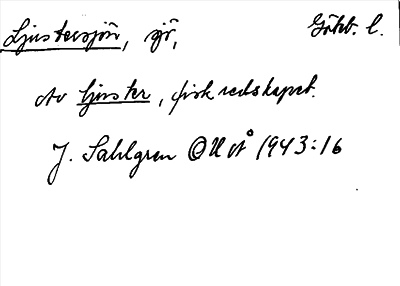 Ljustersjön, sjö, Göteb. l.
Av ljuster, fiskredskapet.
J. Sahlgren OUÅ 1943:16